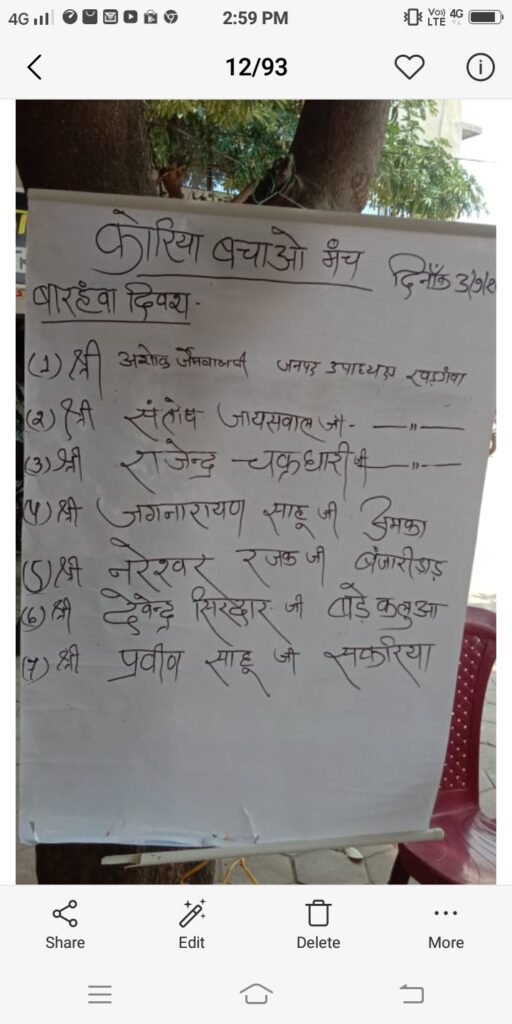 4G 2:59 PM Vo) LTE 4G
12/93
कोरिया बचाओ मंच
दिनाँक 3/9/
बारहँवा दिवश -
(1) श्री अशोक जैसवाल जी जनपद उपाध्यक्ष खड़गंवा
(२) श्री संतोष जायसवाल जी - —"—
(3) श्री राजेन्द्र चक्रधारी जी —"—
(4) श्री जगनारायण साहू जी उमका
(5) श्री नरेश्वर रजक जी बंजारीडाड़
(6) श्री देवेन्द्र सिरदार जी बड़े कलुआ
(7) श्री प्रवीव साहू जी सकरिया
Share Edit Delete More